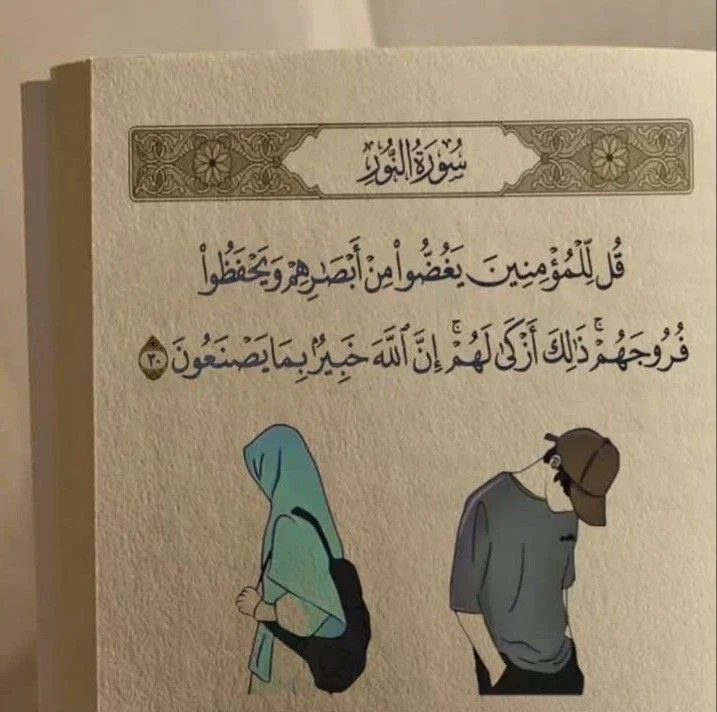 سُورَةُ النُّورِ
قُل لِّلْمُؤْمِنِينَ يَغُضُّوا۟ مِنْ أَبْصَـٰرِهِمْ وَيَحْفَظُوا۟
فُرُوجَهُمْ ۚ ذَٰلِكَ أَزْكَىٰ لَهُمْ ۚ إِنَّ ٱللَّهَ خَبِيرٌۢ بِمَا يَصْنَعُونَ ٣٠